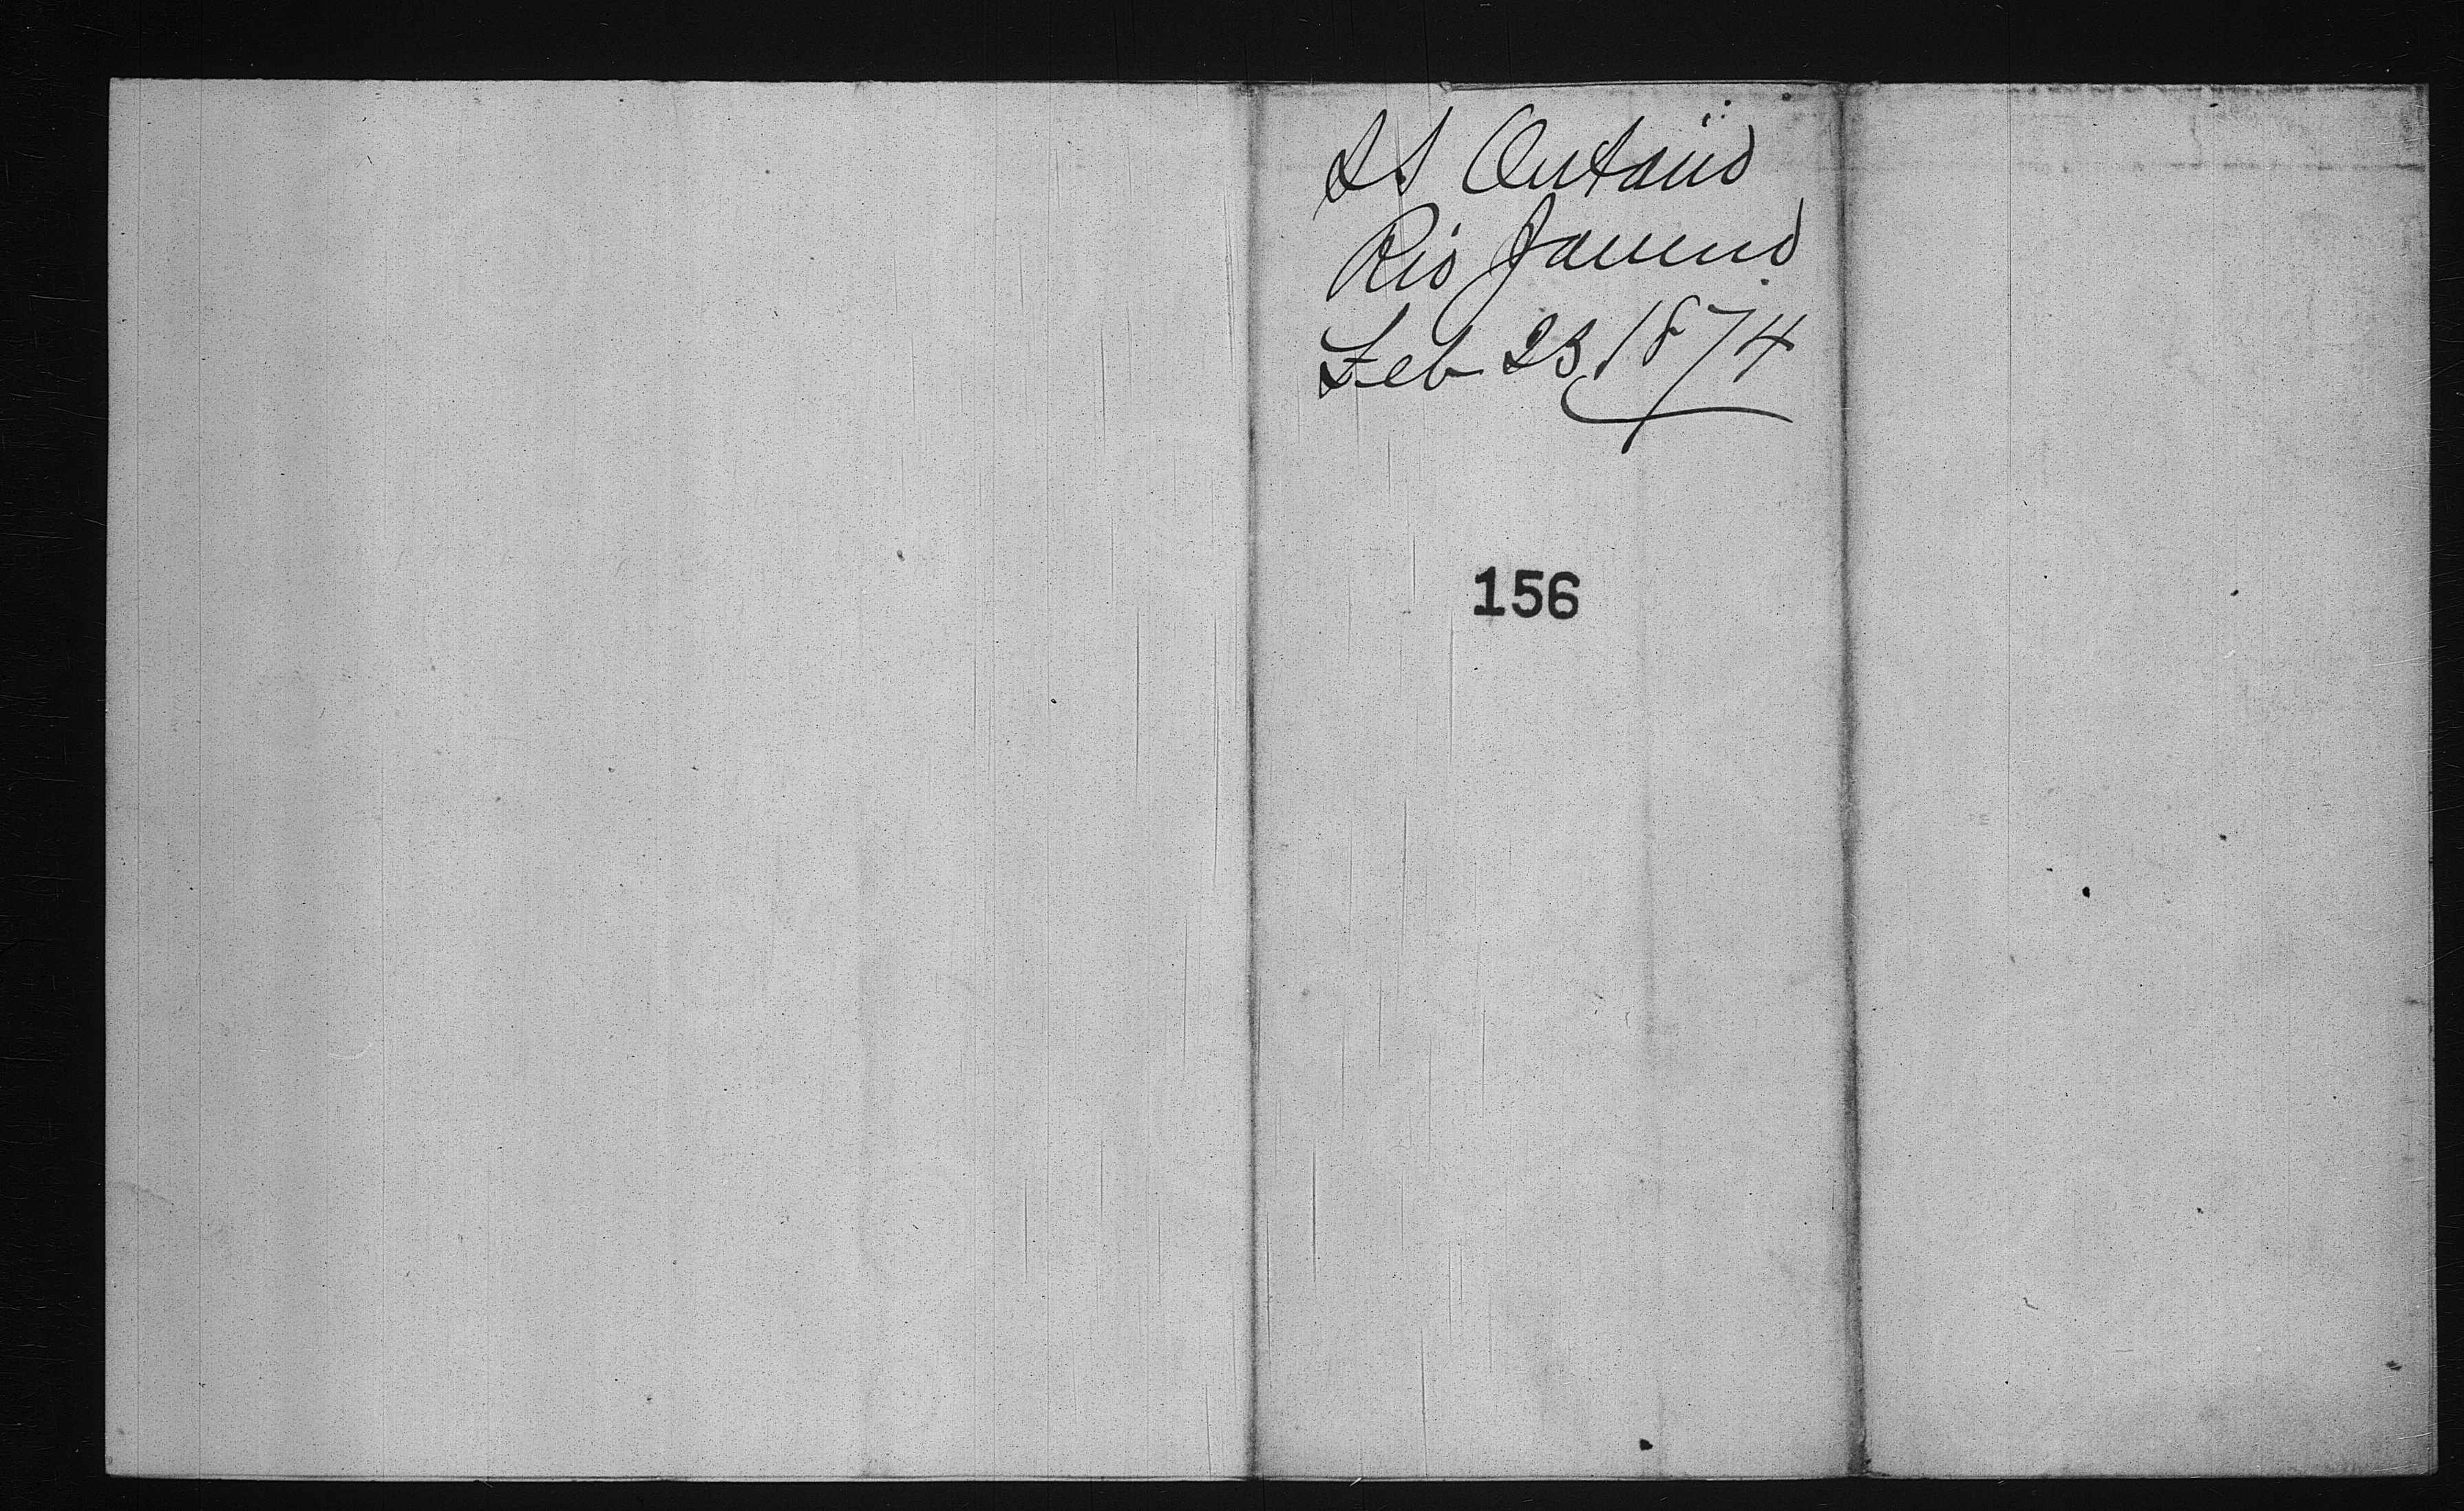 SS Ontario
Rio Janeiro
Feb 23, 1874
156